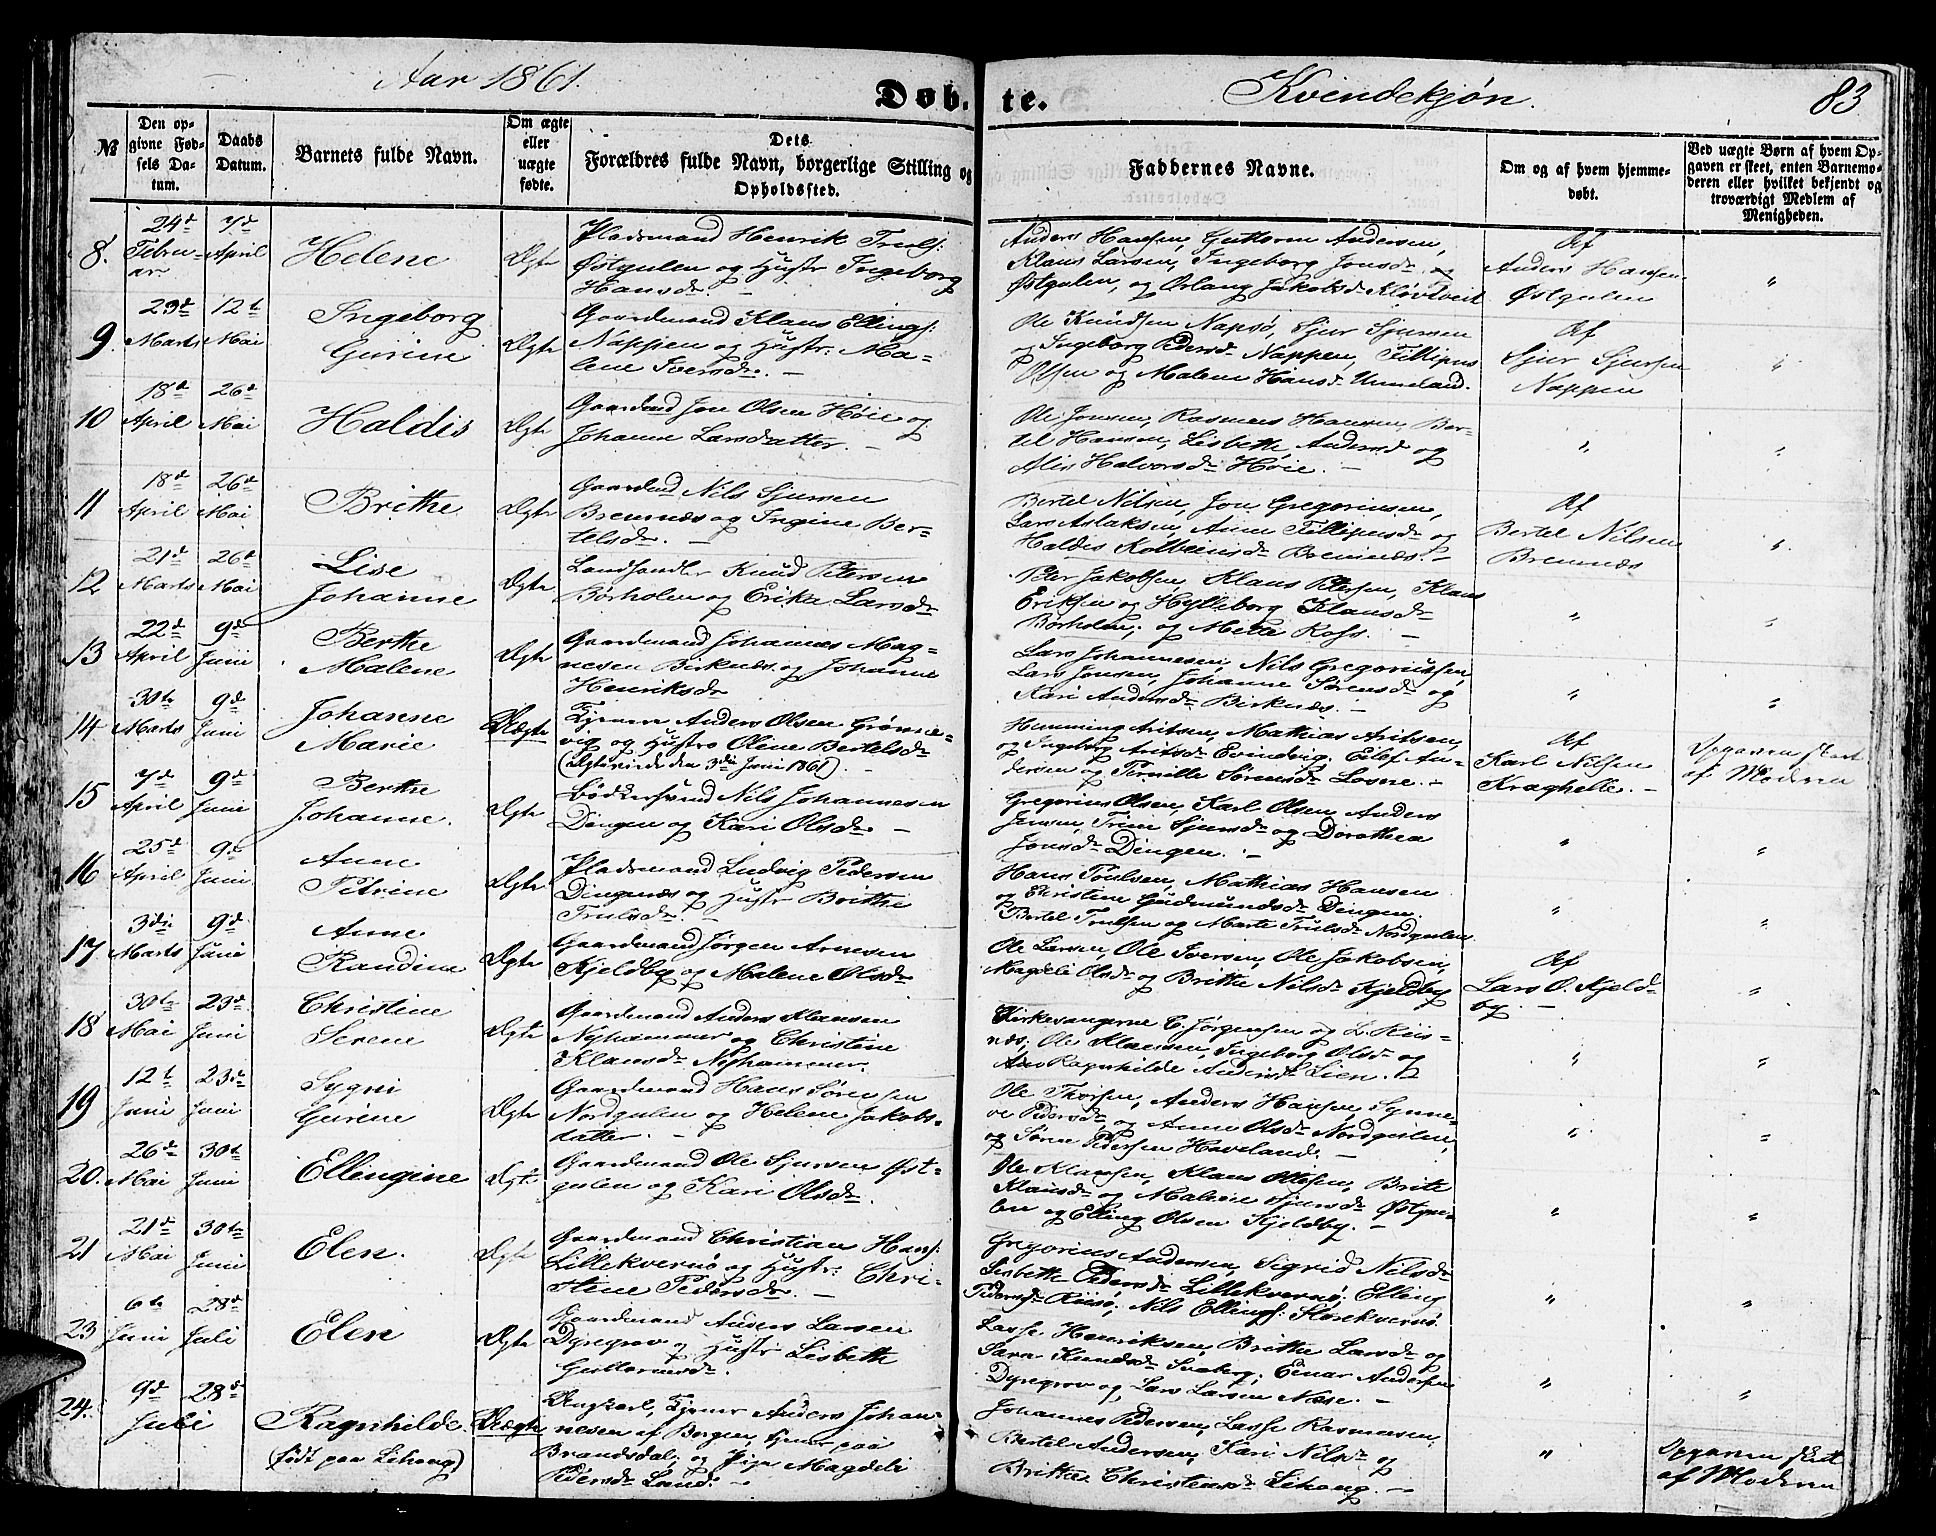 Aar 1861. Døb- te. Kvindekjøn. 83
№ Den opgivne Fødsels Datum. Daabs Datum. Barnets fulde Navn. Om ægte eller uægte fødte. Dets Forældres fulde Navn, borgerlige Stilling og Opholdssted. Faddernes Navne. Om og af hvem hjemmedøbt. Ved uægte Børn af hvem Opgaven er skeet, enten Barnemoderen eller hvilket bekjendt og troværdigt Medlem af Menigheden.
8. 24d Februar 7d April Helene Ægte
Pladsmand Henrik Truls:
Østgulen og Hustr Ingeborg
Hansdr. –
Anders Hansen, Guttorm Andersen,
Klaus Larsen, Ingeborg Jonsdr og
Østgulen, og Ørlaug Jakobsdr Kløvtveit
Af
Anders Hansen
Østgulen
"
9. 23d Marts 12t Mai Ingeborg
Gurine Ægte
Gaardmand Klaus Ellings:
Nappen og Hustr: Ma-
lene Iversdr. –
Ole Knudsen Napsø, Sjur Sjursen
og Ingeborg Pedersdr Nappen, Fillipus
Olsen og Malene Hansdr Unneland.
Af
Sjur Sjursen
Nappen
"
10 18d April 26d Mai Haldis Ægte
Gaardmd Jon Olsen Høie og
Johanne Larsdatter. –
Ole Jonsen, Rasmus Hansen, Ber-
tel Hansen, Lisbette Andersd og
Alis Halvorsdr Høie. –
" "
11 18d April 26d Mai Brithe Ægte
Gaardmd Nils Sjursen
Bremnæs og Ingine Ber-
telsdr. –
Bertel Nilsen, Jon Gregoriusen,
Lars Aslaksen, Anne Fillipusdr og
Haldis Kolbeensdr Bremnæs. –
Af
Bertel Nilsen
Bremnæs
"
12 21d Marts 26d Mai Lise
Johanne Ægte
Landhandler Knud Petersen
Børholm og Erika Larsdr
Peter Jakobsen, Klaus Petersen, Klaus
Eriksen og Hylleborg Klausdr
Børholm, og Mette Ross. –
" "
13 22d April 9d Juni Berthe
Malene Ægte
Gaardmand Johannes Mag-
nesen Birknæs og Johanne
Henriksdr
Lars Johannesen, Nils Gregoriussen,
Lars Jonsen, Johanne Sørensdr og
Kari Andersdr Birknæs. –
" "
14 30te Marts 9d Juni Johanne
Marie Uægte
Tjenere Anders Olsen Grønne-
vig og Hustro Oline Bertelsdr
(Ægteviede den 3di Juni 1861). –
Henning Aritsen, Mathias Aritsen,
og Ingeborg Aritsdr Evindvig, Eilef An-
dersen og Pernille Sørensdr Losne. –
Af
Karl Nilsen
Kraghelle. –
Opgaven skeet
af Moderen
15 7d April 9d Juni Berthe
Johanne. Ægte
Bødkersvend Nils Johannesen
Dingen og Kari Olsdr –
Gregorius Olsen, Karl Olsen, Anders
Jensen, Trine Sjursdr og Dorothea
Jonsdr Dingen. –
" "
16 25d April 9d Juni Anne
Petrine Ægte
Pladsmand Ludvig Pedersen
Dingenæs og Hustr Britthe
Trulsdr. –
Hans Poulsen, Mathias Hansen
og Christine Gudmundsdr Dingen.
Bertel Trulsen og Marte Trulsdr Nordgulen
" "
17 3di Marts 9d Juni Anne
Kandine Ægte
Gaardmand Jørgen Arnesen
Kjeldby og Malene Olsdr
Ole Larsen, Ole Iversen, Ole Jakobsen,
Magdeli Olsdr og Britthe Nilsdr Kjeldby
Af
Lars O. Kjeld-
by. –
"
18 30te Mai 23d Juni Christine
Serene Ægte
Gaardmand Anders Klausen
Nyhammer og Christine
Klausdr Nyhammer.
Kirkesangerne C. Jørgensen og L. Riis-
næs, Ole Klausen, Ingeborg Olsdr og
Ragnhilde Andersdr Lien.
" "
19 12t Juni 23d Juni Sygni
Gurine Ægte
Gaardmand Hans Sørensen
Nordgulen og Helene Jakobs-
datter. –
Ole Thorsen, Anders Hansen, Synne-
ve Pedersdr og Anne Olsdr Nordgulen,
og Søren Pedersen Haveland. –
" "
20. 26d Mai 30te Juni Ellingine Ægte
Gaardmand Ole Sjursen Øst-
gulen og Kari Olsdr.
Ole Klausen, Klaus Olsen, Brite
Klausdr og Malene Sjursdr Østgu-
len og Elling Olsen Kjeldby. –
" "
21 21d Mai 30te Juni Elen. Ægte
Gaardmand Christian Hans:
Lillekvernø og Hustr: Chri-
stine Pedersdr. –
Gregorius Andersen, Sigrid Nilsdr
Lisbette Pedersdr Lillekvernø, Elling
Pedersen Riisø, Nils Ellings: Storekvernø.
" "
23 6te Juni 28d Juli Elen Ægte
Gaardmand Anders Larsen
Dyregrov og Hustr Lisbette
Guttormsdr.
Lasse Henriksen, Britthe Larsdr og
Sara Knudsdr Sneberg, Einar Andersen
Dyregrov og Lars Larsen Næse. –
" "
24. 9d Juli 28d Ragnhilde.
(født paa Lihoug) Uægte
Ungkarl, Tjener Anders Johan-
nesen af Bergen, tjener paa
Brandsdal, og Pige Magdeli
Pedersdr Land. –
Johannes Pedersen, Lasse Rasmusen,
Bertel Andersen, Kari Nilsdr og
Britthe Christensdr Lihoug. –
"
Opgaven skeet
af Moderen